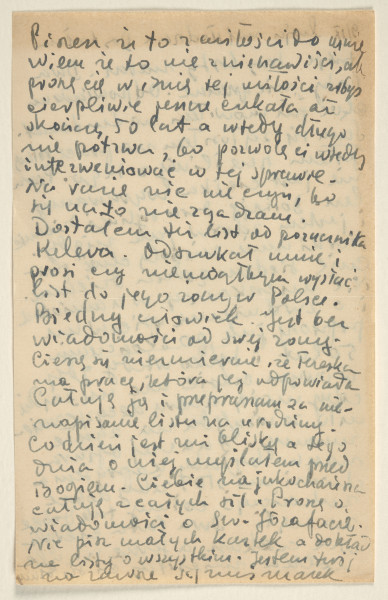 Piszesz że to z miłości do mnie
wiem że to nie z nienawiści, ale
proszę cię w imię tej miłości żebyś
cierpliwie jeszcze czekała aż
skończę 50 lat a wtedy długo
nie potrwa, bo pozwolę ci wtedy
interweniować w tej sprawie.
Na razie nic nie czyń, bo
się na to nie zgadzam.
Dostałem tu list od porucznika
Odszukał mnie i
prosi czy nie mógłbym wysłać
list do jego żony w Polsce.
Biedny człowiek. Jest bez
wiadomości od swej żony.
Cieszę się niezmiernie, że Hreska
ma pracę, która jej odpowiada
Całuję ją i przepraszam za nie-
napisanie listu na urodziny.
Codzień jest mi bliską a tego
dnia o niej myślałem przed
Bogiem. Ciebie najukochańsza
całuję z całych sił. Proszę o
wiadomości o Św. Józafacie.
Nie pisz małych kartek a dokład
ne listy o wszystkim. Jestem twój
na zawsze